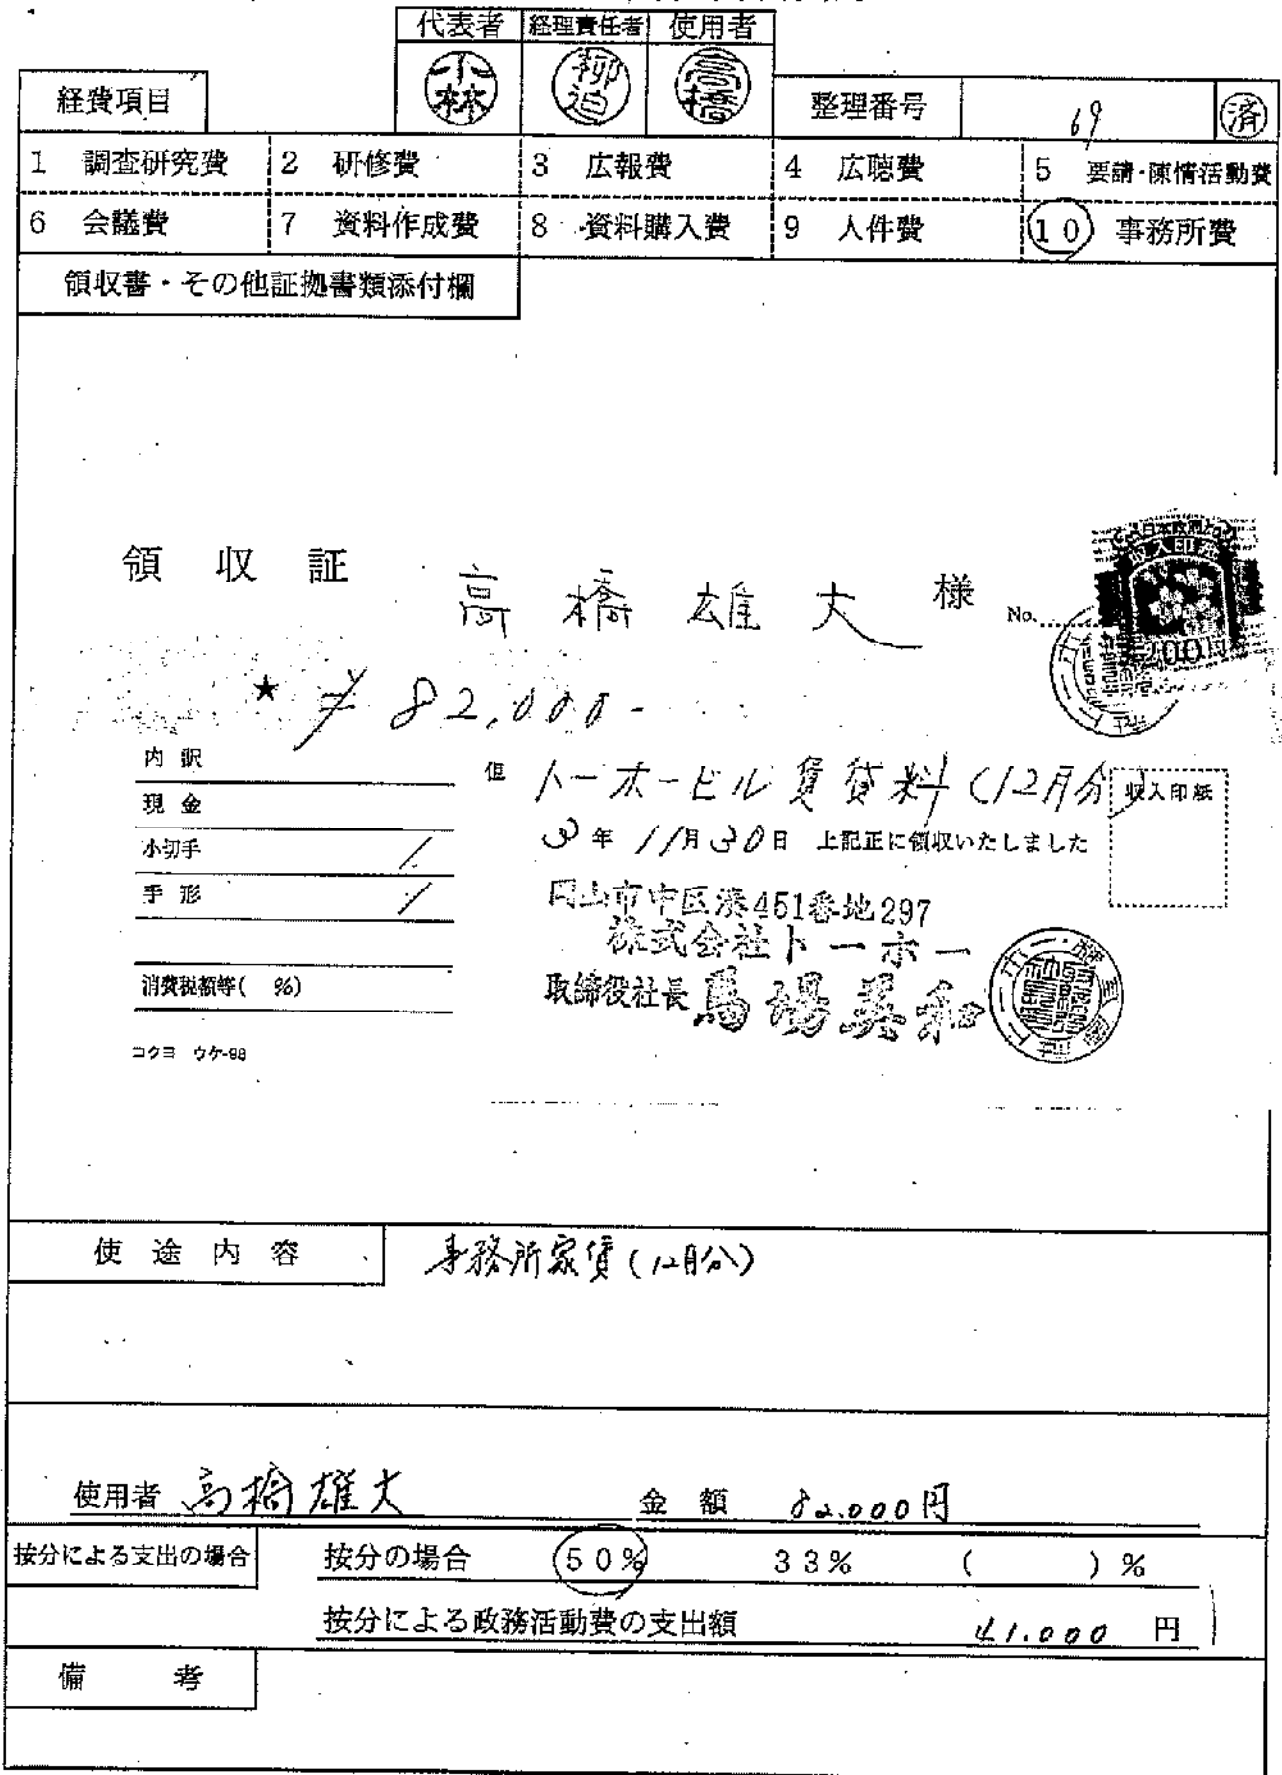 代表者 経理責任者 使用者
小林 柳迫 高橋
経費項目 整理番号 69 済
1 調査研究費 2 研修費 3 広報費 4 広聴費 5 要請・陳情活動費
6 会議費 7 資料作成費 8 資料購入費 9 人件費 10 事務所費
領収書・その他証拠書類添付欄
領収証 高橋雄大 様 No.
日本政府
収入印紙
200円
★ ¥82,000-
内訳
但 トーホービル賃貸料(12月分)
現金
収入印紙
小切手
3年11月30日 上記正に領収いたしました
手形
岡山市中区湊451番地297
株式会社トーホー
消費税額等( %)
取締役社長 馬場美和
コクヨ ウケ-98
使途内容 事務所家賃(12月分)
使用者 高橋雄大 金額 82.000円
按分による支出の場合 按分の場合 50% 33% ( )%
按分による政務活動費の支出額 41.000 円
備考